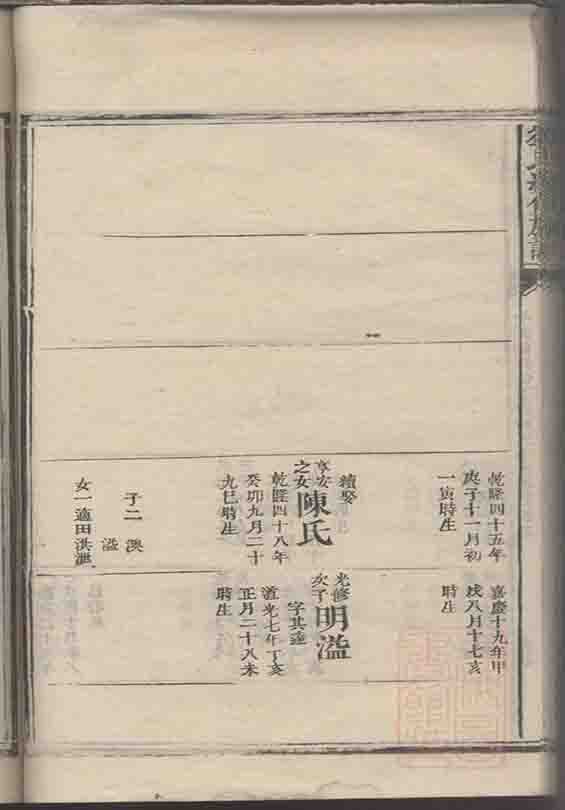 乾隆四十五年
庚子十一月初
一寅時生
續娶
享安
之女
陳氏
乾隆四十八年
癸卯九月二十
九巳時生
子二 澳
溢
女一適田洪泄
嘉慶十九年甲
戌八月十七亥
時生
光修
次子
明溢
字其達
道光七年丁亥
正月二十八未
時生